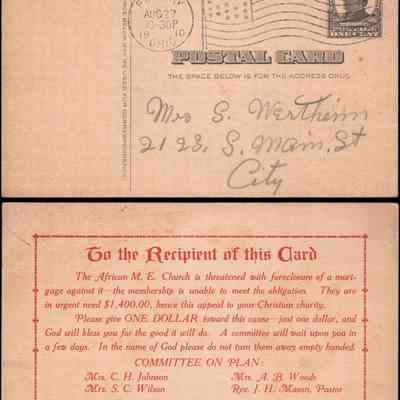 AUG 27
-30P
1910
OHIO
ONE CENT
POSTAL CARD
THE SPACE BELOW IS FOR THE ADDRESS ONLY.
Mrs S. Wertheim
212 S. Main St
City
To the Recipient of this Card
The African M. E. Church is threatened with foreclosure of a mort-
gage against it—the membership is unable to meet the obligation. They are
in urgent need $1,400.00, hence this appeal to your Christian charity.
Please give ONE DOLLAR toward this cause—just one dollar, and
God will bless you for the good it will do. A committee will wait upon you in
a few days. In the name of God please do not turn them away empty handed.
COMMITTEE ON PLAN:
Mrs. C. H. Johnson Mrs. A. B. Woods
Mrs. S. C. Wilson Rev. J. H. Mason, Pastor